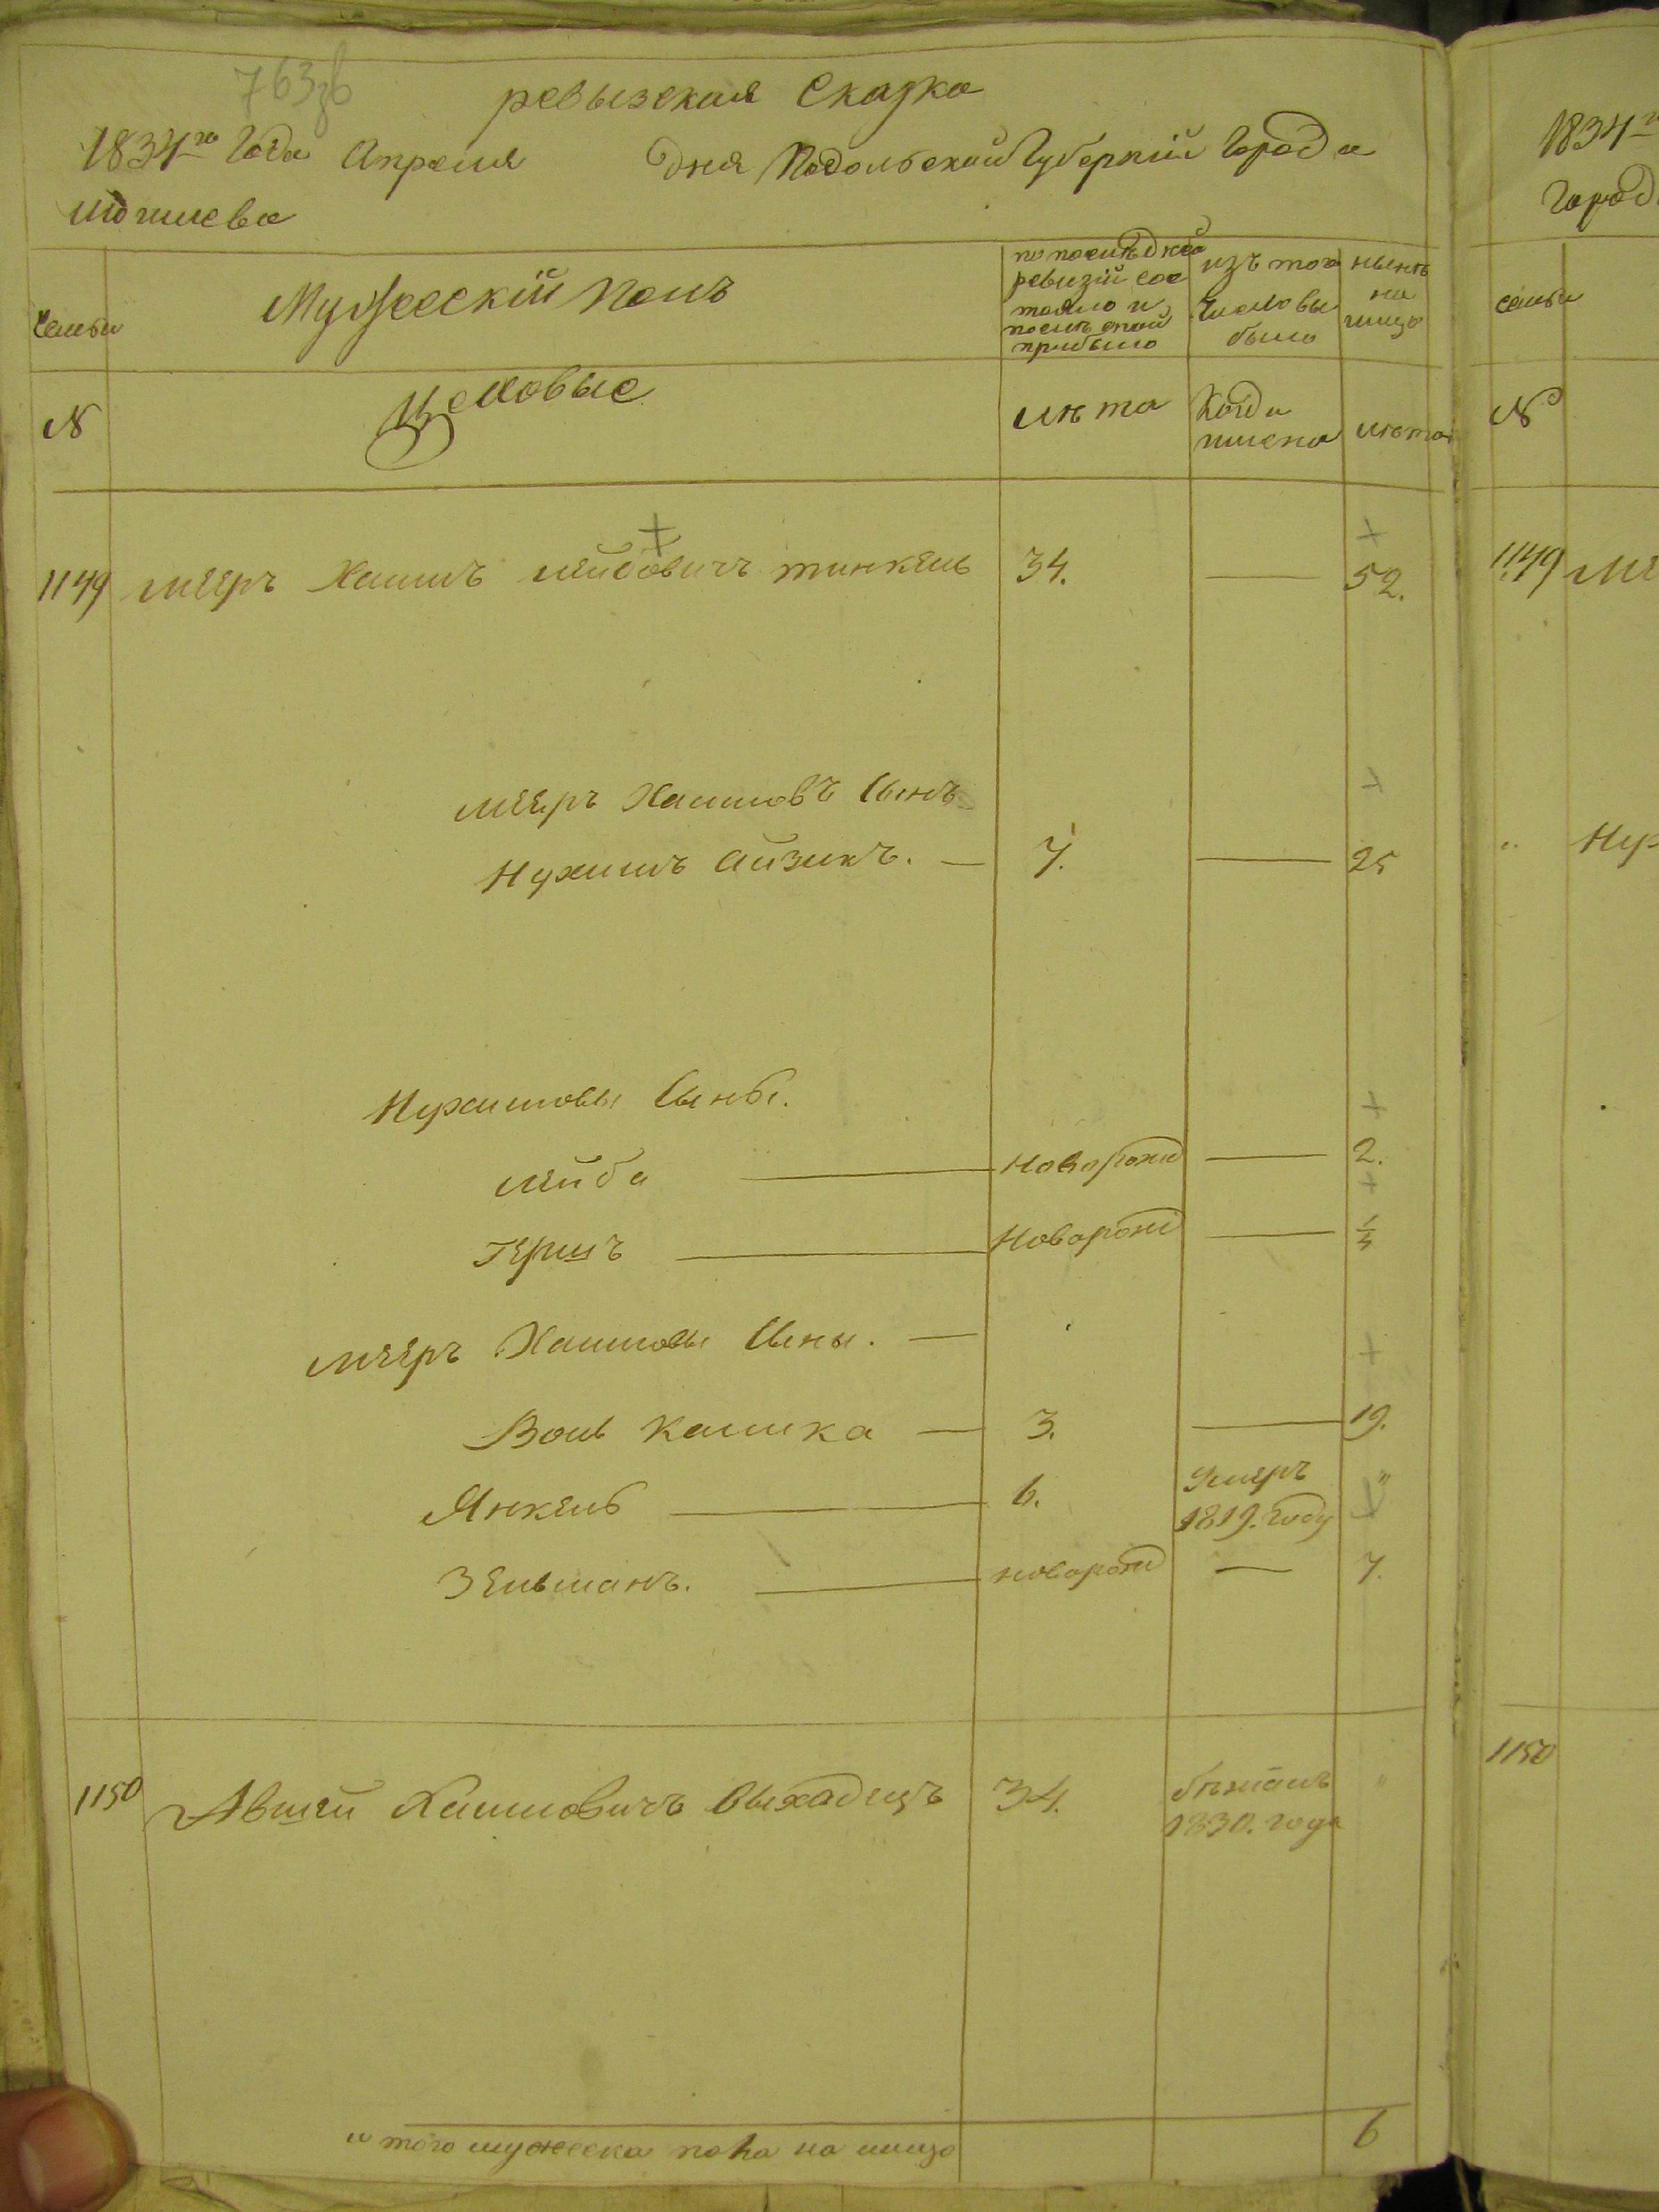 763зв
ревызская Сказка
1834го Года Апреля дня Подольской Губерніи Города
Могилева
Семьи
Мужескій полъ
по последней ревизіи состояло и после оной прибыло
изъ того числа выбыло
ныне на лицо
N
Цеховые
лѣта
Когда именно
лѣта
1149 Мееръ Хаимъ Лейбовичъ Тинкель 34. — 52.
Мееръ Хаимовъ Сынъ
Нухимъ Айзикъ. — 7. — 25
Нухимовы Сыны.
Лейба — Новорожд — 2.
Гершъ — Новорожд —
Мееръ Хаимовы Сыны. —
Воль 3. — 19.
Янкель — 6. Умеръ 1819. Году "
Зельманъ. — новорожд — 7.
1150 Авшей Хаимовичъ Выходецъ 34. бежалъ 1830. года "
и того мужеска пола на лицо 6
1834
Город
Семьи
N
1149 Ме
" Нух
1150